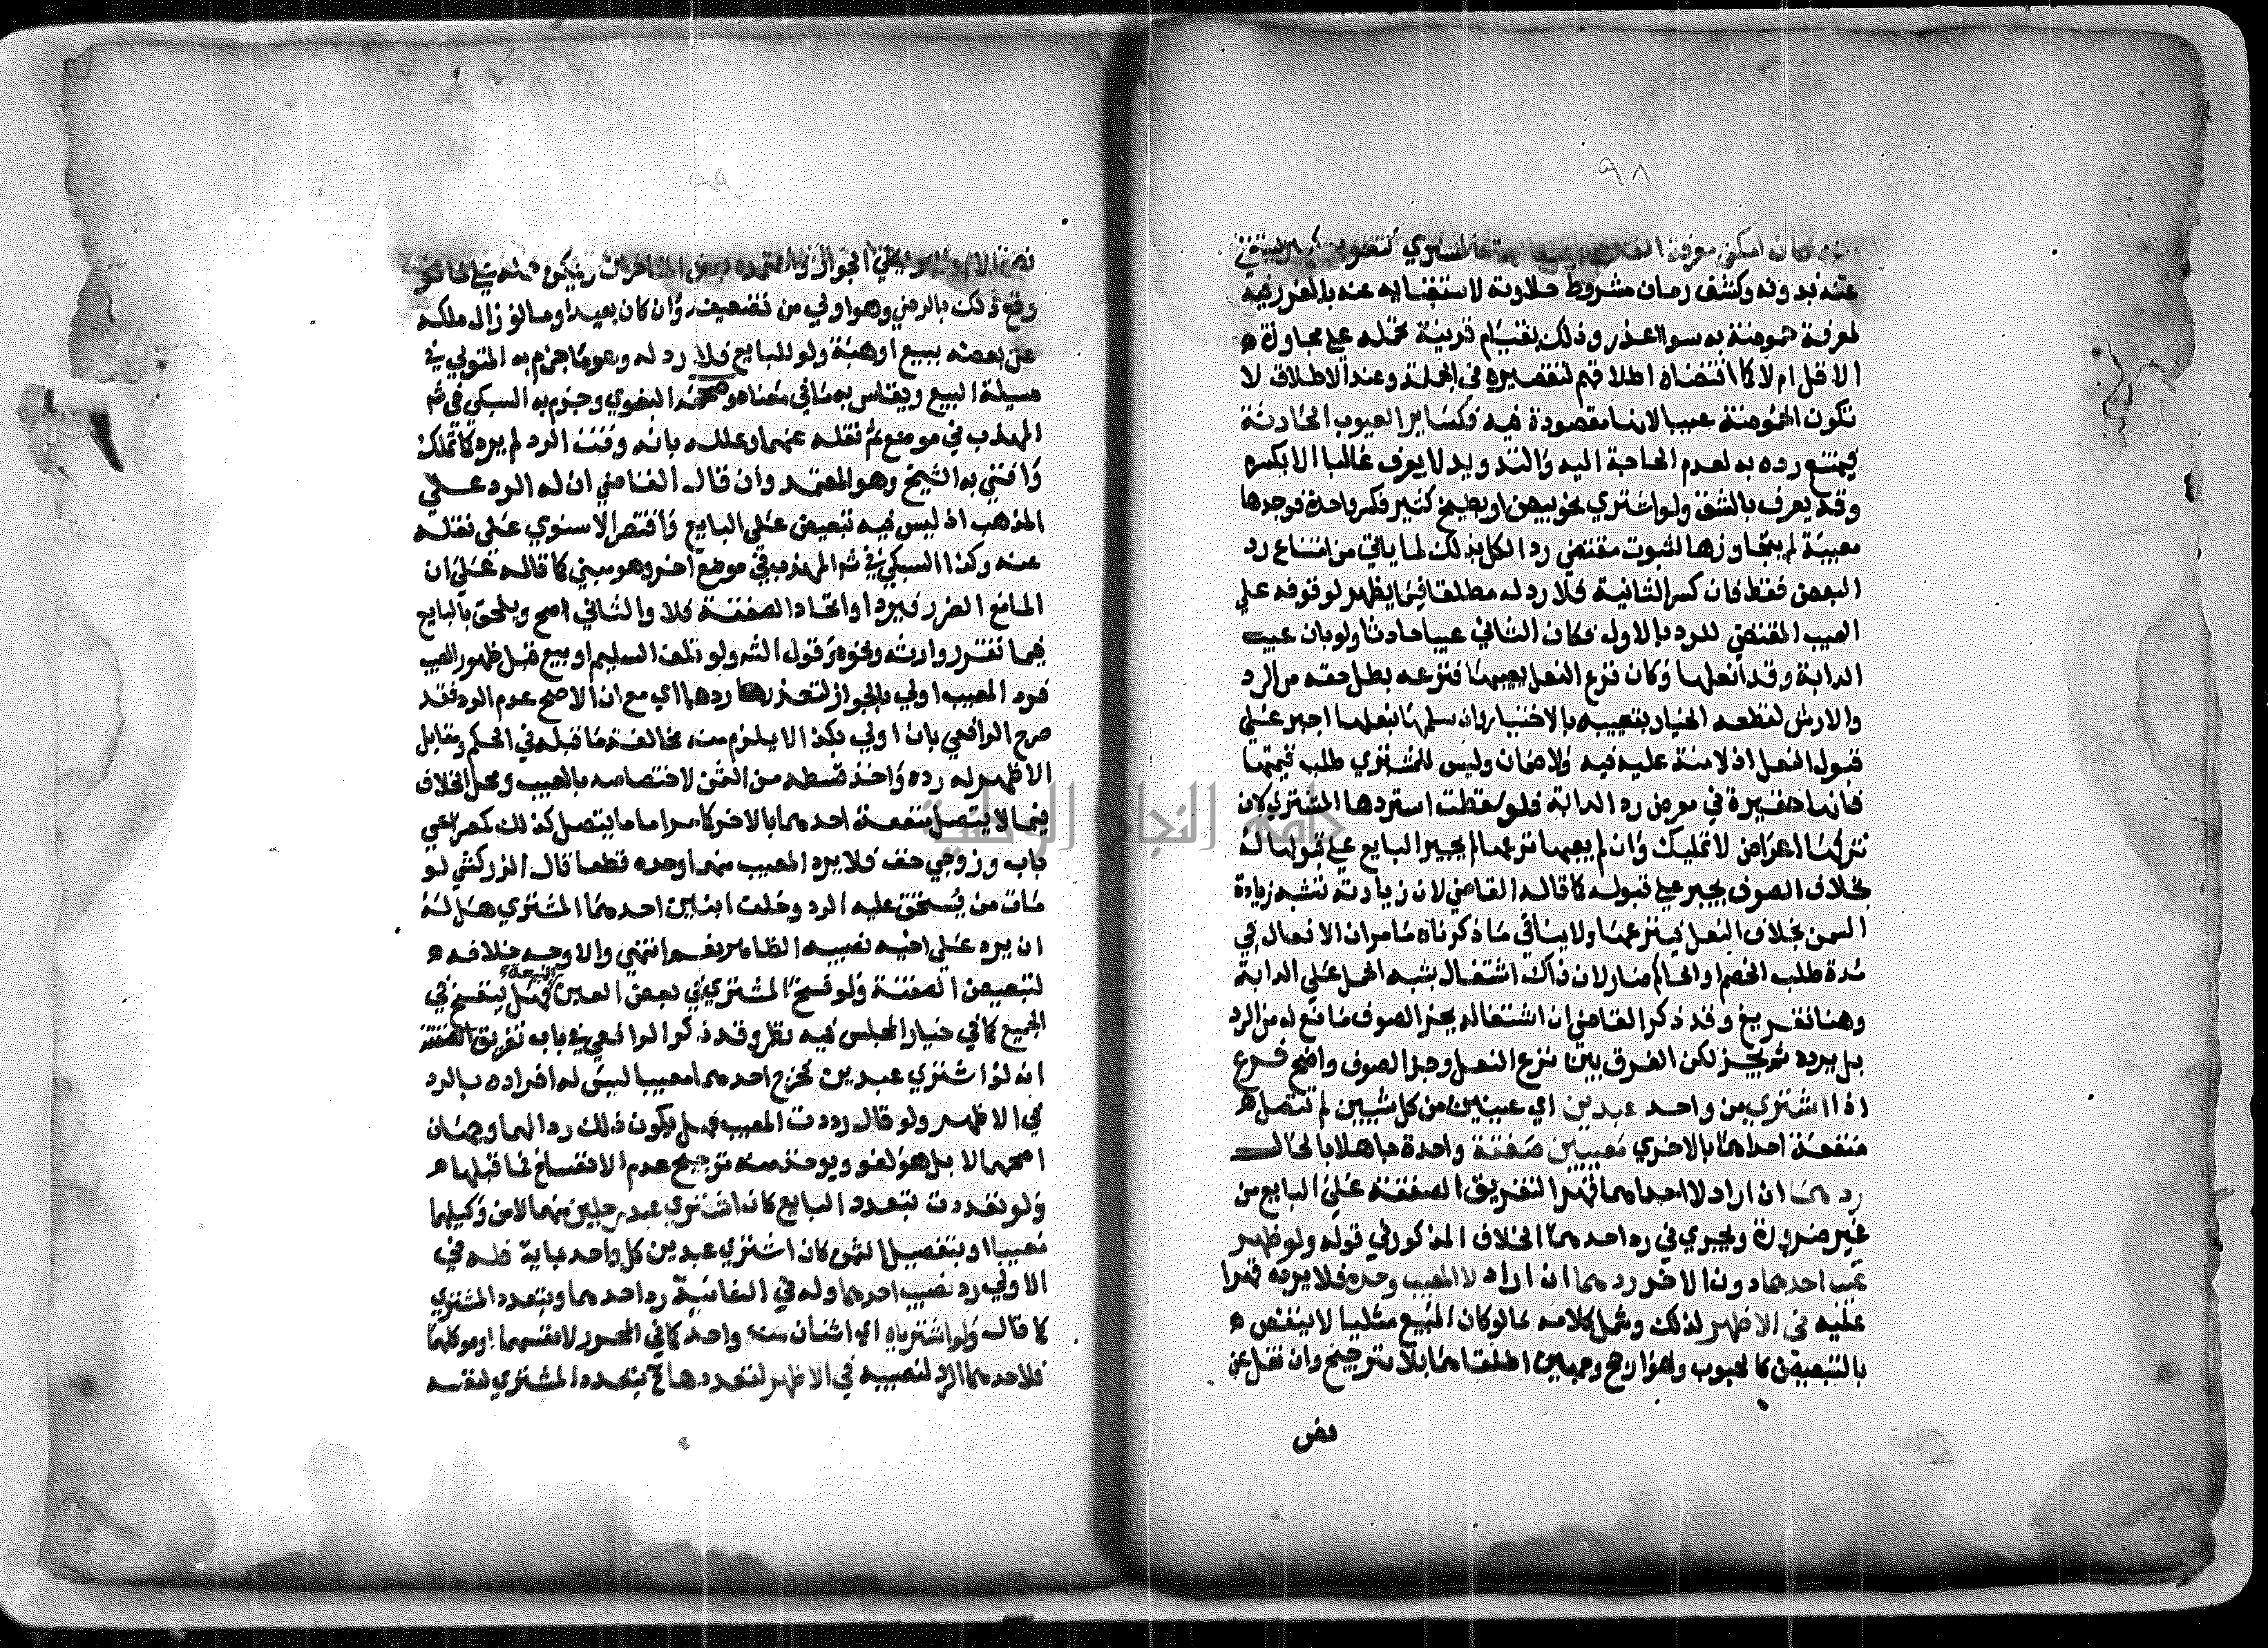 ٩٨
فان امكن معرفة المشتري كتقوير كبير يستغنى
عنه بدونه وكشق رمان مشروط حلاوته لاستغنايه عنه بالغرز فيه
لمعرفة حموضته به سوا اعذر وذلك بقيام قرينة تحمله على مجاوزة
الاقل ام لا كما اقتضاه اطلاقهم لتقصيره في الجملة وعند الاطلاق لا
تكون الحموضة عيبا لانها مقصودة فيه وكسايرا لعيوب الحادثة
فيمتنع رده به لعدم الحاجة اليه والتدويد لا يعرف غالبا الا بكسره
وقد يعرف بالشق ولو اشتري نحو بيض او بطيخ كثير فكسر واحدة فوجدها
معيبة لم يتجاوزها لثبوت مقتضي رد الكل بذلك لما ياتي من امتناع رد
البعض فقط فان كسر الثانية فلا رد له مطلقا فيما يظهر لوقوفه على
العيب المقتضي للرد بالاول فكان الثاني عيبا حادثا ولو بان عيب
الدابة وقد انعلها وكان نزع النعل يعيبها فنزعه بطل حقه من الرد
والارش لقطعه الخيار بتعييبه بالاختيار وان سلمها بنعلها اجبر على
قبول النعل اذ لا منة عليه فيه ولا ضمان وليس للمشتري طلب قيمتها
فانها حقيرة في معرض رد الدابة فلو سقطت استردها المشتري لان
تركها اعراض لا تمليك وان لم يعيبها نزعها لم يجبر البايع على قبولها له
بخلاف الصوف يجبر على قبوله كما قاله القاضي لان زيادته تشبه زيادة
السمن بخلاف النعل فينزعها ولا ينافي ما ذكرناه ما مر ان الانعال في
مدة طلب الخصم او الحاكم ضار لان ذاك اشتغال يشبه الحمل على الدابة
وهنا تفريغ وقد ذكر القاضي ان اشتغاله بجز الصوف مانع له من الرد
بل يرده ثم يجز لكن الفرق بين نزع النعل وجز الصوف واضح فرع
اذا اشتري من واحد عبدين اي عينين من كل شيين لم تتصل
منفعة احداهما بالاخري معيبين صفقة واحدة جاهلا بالحال
ردهما ان اراد لا احداهما قهرا لتفريق الصفقة على البايع من
غير ضرورة ويجري في رد احدهما الخلاف المذكور في قوله ولو ظهر
عيب احدهما دون الاخر ردهما ان اراد لا المعيب وحده فلا يرده قهرا
عليه في الاظهر لذلك وشمل كلامه ما لو كان المبيع مثليا لا ينقص
بالتبعيض كالحبوب وهو ارجح وجهين اطلقاهما بلا ترجيح وان نقل عن
نص
نص الام والبويطي الجواز واعتمده بعض المتاخرين ويمكن حمله على ما
وقع ذلك بالرضي وهو اولي من تضعيفه وان كان بعيدا وما لو زال ملكه
عن بعضه ببيع او هبة ولو للبايع فلا رد له وهو ما جزم به المتولي في
مسيلة البيع ويقاس به ما في معناه وصححه البغوي وجزم به السبكي في شرح
المهذب في موضع ثم نقله عنهما وعلله بانه وقت الرد لم يرد كما تملك
وافتي به الشيخ وهو المعتمد وان قال القاضي ان له الرد على
المذهب اذ ليس فيه تبعيض على البايع واقتصر الاسنوي على نقله
عنه وكذا السبكي في شرح المهذب في موضع اخر وهو مبني كما قاله على ان
المانع الضرر فيرد او اتحاد الصفقة فلا والثاني اصح ويلحق بالبايع
فيما تقرر وارثه ونحوه وقول الشرح ولو تلف السليم او بيع قبل ظهور العيب
فرد المعيب اولي بالجواز لتعذر ردهما اي مع ان الاصح عدم الرد فقد
صرح الرافعي بان اولي بكذا لا يلزم منه مخالفة ما قبله في الحكم ومقابل
الاظهر له رده واخذ قسطه من الثمن لاختصاصه بالعيب ومحل الخلاف
فيما لا يتصل منفعة احدهما بالاخر كما مر اما ما يتصل كذلك كمصراعي
باب وزوجي خف فلا يرد المعيب منهما وحده قطعا قال الزركشي لو
مات من يستحق عليه الرد وخلف ابنين احدهما المشتري هل له
ان يرد على اخيه نصيبه الظاهر نعم انتهي والاوجه خلافه
لتبعيض الصفقة ولو فسخ المشتري في بعض العين المبيعة فهل ينفسخ في
الجميع كما في خيار المجلس فيه نظر وقد ذكر الرافعي في باب تفريق الصفقة
انه لو اشتري عبدين فخرج احدهما معيبا ليس له افراده بالرد
في الاظهر ولو قال رددت المعيب فهل يكون ذلك ردا لهما وجهان
اصحهما لا بل هو لغو ويوخذ منه ترجيح عدم الانفساخ فيما قبلها
ولو تعددت بتعدد البايع كان اشتري عبد رجلين منهما لا من وكيلهما
معيبا او بتفصيل الثمن كان اشتري عبدين كل واحد بماية فله في
الاولي رد نصيب احدهما وله في الثانية رد احدهما وبتعدد المشتري
كما قال ولو اشترياه اي اثنان من واحد كما في المحرر لانفسهما او موكلهما
فلاحدهما الرد لنصيبه في الاظهر لتعددها ح بتعدد المشتري لنفسه